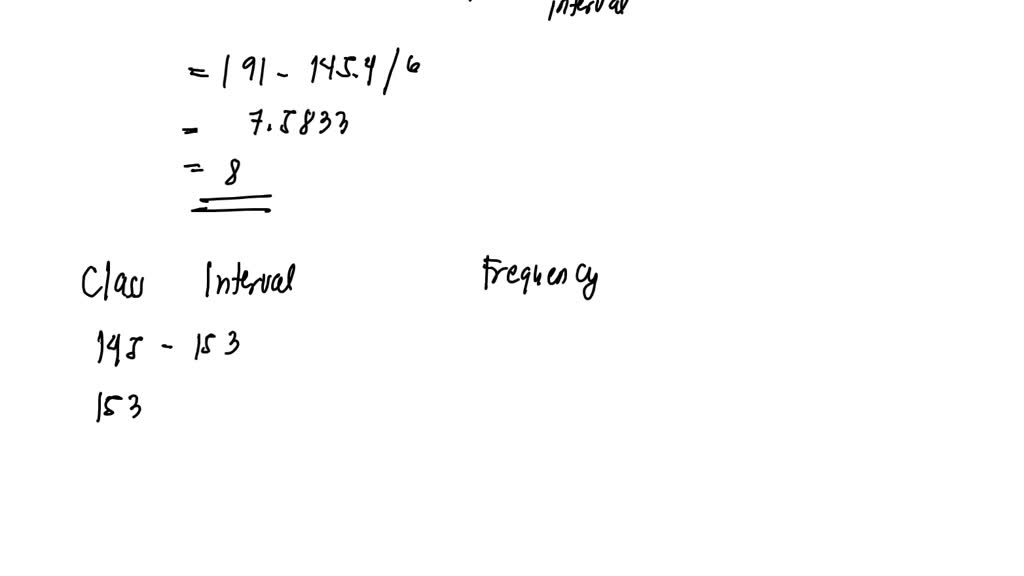 interval
= 191 - 145.4/6
= 7.5833
= 8
Class Interval Frequency
145 - 153
153